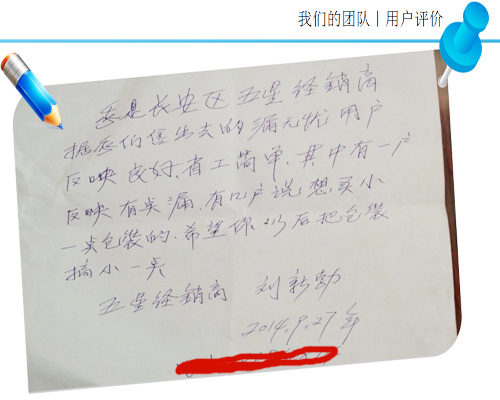 我们的团队｜用户评价
我是长安区五星经销商
据我们售出去的漏无忧用户
反映良好，省工简单，其中有一户
反映有点漏，有几户说，想买小
一点包装的，希望你以后把包装
搞小一点
五星经销商 刘新勤
2014.9.27年